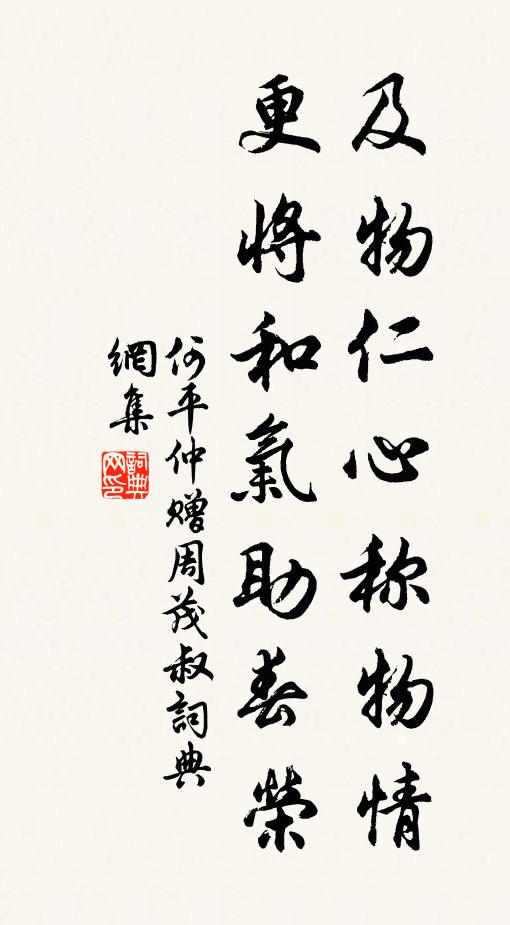 及物仁心称物情
更将和氣助春榮
何平仲赠周茂叔詞典
網集
詞典
网印